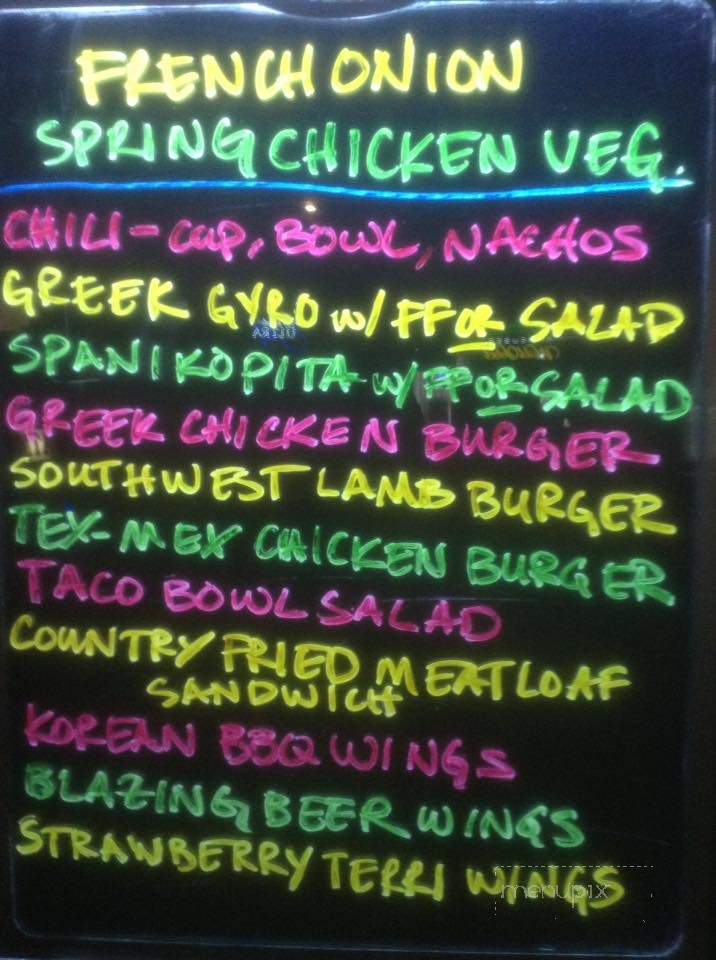 FRENCH ONION
SPRING CHICKEN VEG.
CHILI - CUP, BOWL, NACHOS
GREEK GYRO w/ FF OR SALAD
SPANIKOPITA w/ FF OR SALAD
GREEK CHICKEN BURGER
SOUTHWEST LAMB BURGER
TEX-MEX CHICKEN BURGER
TACO BOWL SALAD
COUNTRY FRIED MEATLOAF
SANDWICH
KOREAN BBQ WINGS
BLAZING BEER WINGS
STRAWBERRY TERRI WINGS
menupix